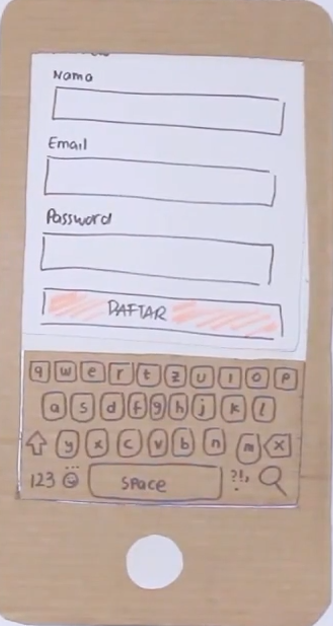 Nama
Email
Password
DAFTAR
q w e r t z u i o p
a s d f g h j k l
y x c v b n m x
123 space ?!,